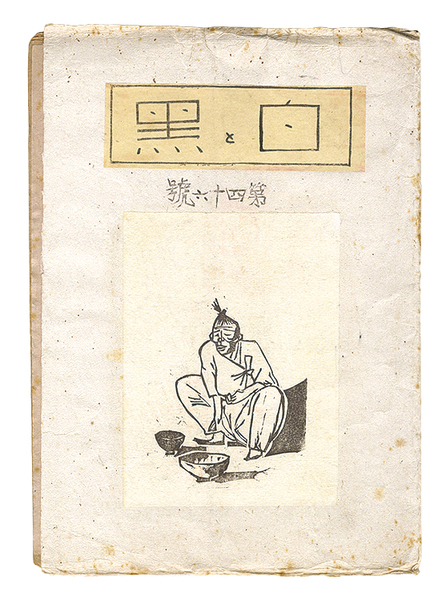 白と黒
第四十六號